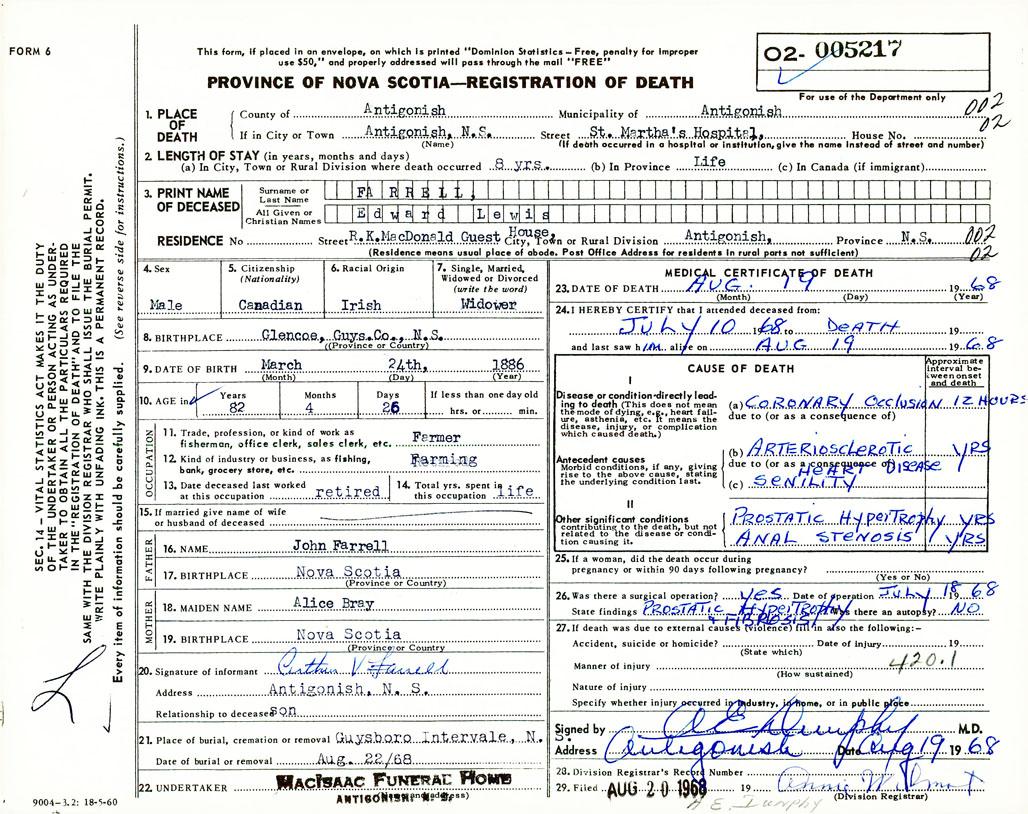 FORM 6
This form, if placed in an envelope, on which is printed "Dominion Statistics – Free, penalty for improper
use $50," and properly addressed will pass through the mail "FREE"
PROVINCE OF NOVA SCOTIA—REGISTRATION OF DEATH
02- 005217
For use of the Department only
002
02
1. PLACE OF DEATH
County of Antigonish Municipality of Antigonish
If in City or Town Antigonish, N.S. Street St. Martha's Hospital, House No.
(Name) (If death occurred in a hospital or institution, give the name instead of street and number)
2. LENGTH OF STAY (in years, months and days)
(a) In City, Town or Rural Division where death occurred 8 yrs. (b) In Province Life (c) In Canada (if immigrant)
3. PRINT NAME OF DECEASED
Surname or Last Name FARRELL,
All Given or Christian Names Edward Lewis
RESIDENCE No Street R.K.MacDonald Guest House, City, Town or Rural Division Antigonish, Province N.S. 002
(Residence means usual place of abode. Post Office Address for residents in rural parts not sufficient) 02
4. Sex
Male
5. Citizenship (Nationality)
Canadian
6. Racial Origin
Irish
7. Single, Married, Widowed or Divorced (write the word)
Widower
8. BIRTHPLACE Glencoe, Guys.Co., N.S.
(Province or Country)
9. DATE OF BIRTH March 24th, 1886
(Month) (Day) (Year)
10. AGE in Years Months Days If less than one day old
82 4 26 hrs. or min.
OCCUPATION
11. Trade, profession, or kind of work as
fisherman, office clerk, sales clerk, etc. Farmer
12. Kind of industry or business, as fishing,
bank, grocery store, etc. Farming
13. Date deceased last worked
at this occupation retired
14. Total yrs. spent in
this occupation life
15. If married give name of wife
or husband of deceased
FATHER
16. NAME John Farrell
17. BIRTHPLACE Nova Scotia
(Province or Country)
MOTHER
18. MAIDEN NAME Alice Bray
19. BIRTHPLACE Nova Scotia
(Province or Country
20. Signature of informant Arthur V Farrell
Address Antigonish, N. S.
Relationship to deceased son
21. Place of burial, cremation or removal Guysboro Intervale, N.
S.
Date of burial or removal Aug. 22/68
22. UNDERTAKER MacIsaac Funeral Home
ANTIGONISH N. S.
(Name and address)
9004–3.2: 18-5-60
MEDICAL CERTIFICATE OF DEATH
23. DATE OF DEATH AUG. 19 1968
(Month) (Day) (Year)
24. I HEREBY CERTIFY that I attended deceased from:
JULY 10 1968 to DEATH 19
and last saw him alive on AUG 19 1968
CAUSE OF DEATH
Approximate interval between onset and death
I
Disease or condition directly leading to death (This does not mean the mode of dying, e.g., heart failure, asthenia, etc. It means the disease, injury, or complication which caused death.)
(a) CORONARY OCCLUSION 12 HOURS
due to (or as a consequence of)
Antecedent causes
Morbid conditions, if any, giving rise to the above cause, stating the underlying condition last.
(b) ARTERIOSCLEROTIC YRS
due to (or as a consequence of) HEART DISEASE
(c) SENILITY
II
Other significant conditions
contributing to the death, but not related to the disease or condition causing it.
PROSTATIC HYPERTROPHY YRS
ANAL STENOSIS YRS
25. If a woman, did the death occur during
pregnancy or within 90 days following pregnancy?
(Yes or No)
26. Was there a surgical operation? yes. Date of operation July 18 1968
State findings PROSTATIC HYPERTROPHY Was there an autopsy? NO
& FIBROSIS
27. If death was due to external causes (violence) fill in also the following:–
Accident, suicide or homicide? Date of injury 19
(State which)
Manner of injury 420.1
(How sustained)
Nature of injury
Specify whether injury occurred in industry, in home, or in public place
Signed by A E Dunphy M.D.
Address Antigonish Date Aug 19 1968
28. Division Registrar's Record Number
29. Filed AUG 20 1968 19 Annie Wilmot
(Division Registrar)
A E. Dunphy
SEC. 14 – VITAL STATISTICS ACT MAKES IT THE DUTY
OF THE UNDERTAKER OR PERSON ACTING AS UNDER-
TAKER TO OBTAIN ALL THE PARTICULARS REQUIRED
IN THE "REGISTRATION OF DEATH" AND TO FILE THE
SAME WITH THE DIVISION REGISTRAR WHO SHALL ISSUE THE BURIAL PERMIT.
WRITE PLAINLY WITH UNFADING INK. THIS IS A PERMANENT RECORD.
Every item of information should be carefully supplied. (See reverse side for instructions.)